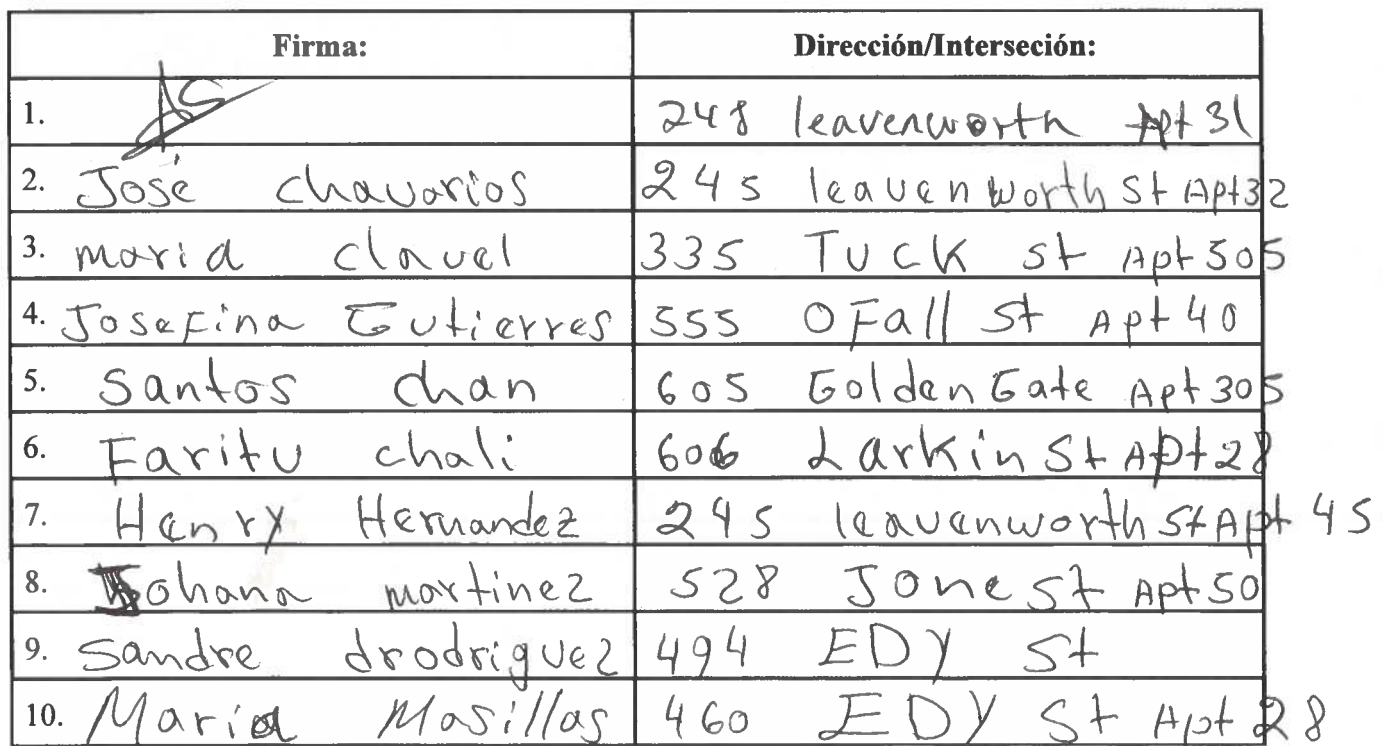 Firma: Dirección/Interseción:
1. 248 leavenworth Apt 31
2. José chavarios 245 leavenworth St Apt32
3. maria clavel 335 TUCK st Apt 505
4. Josefina Gutierres 555 OFall St Apt 40
5. Santos chan 605 Golden Gate Apt 305
6. Faritu chali 606 Larkin St Apt 28
7. Henry Hernandez 245 leavenworth St Apt 45
8. Johana martinez 528 Jone St Apt 50
9. Sandre drodriguez 494 EDY St
10. Maria Masillas 460 EDY St Apt 28